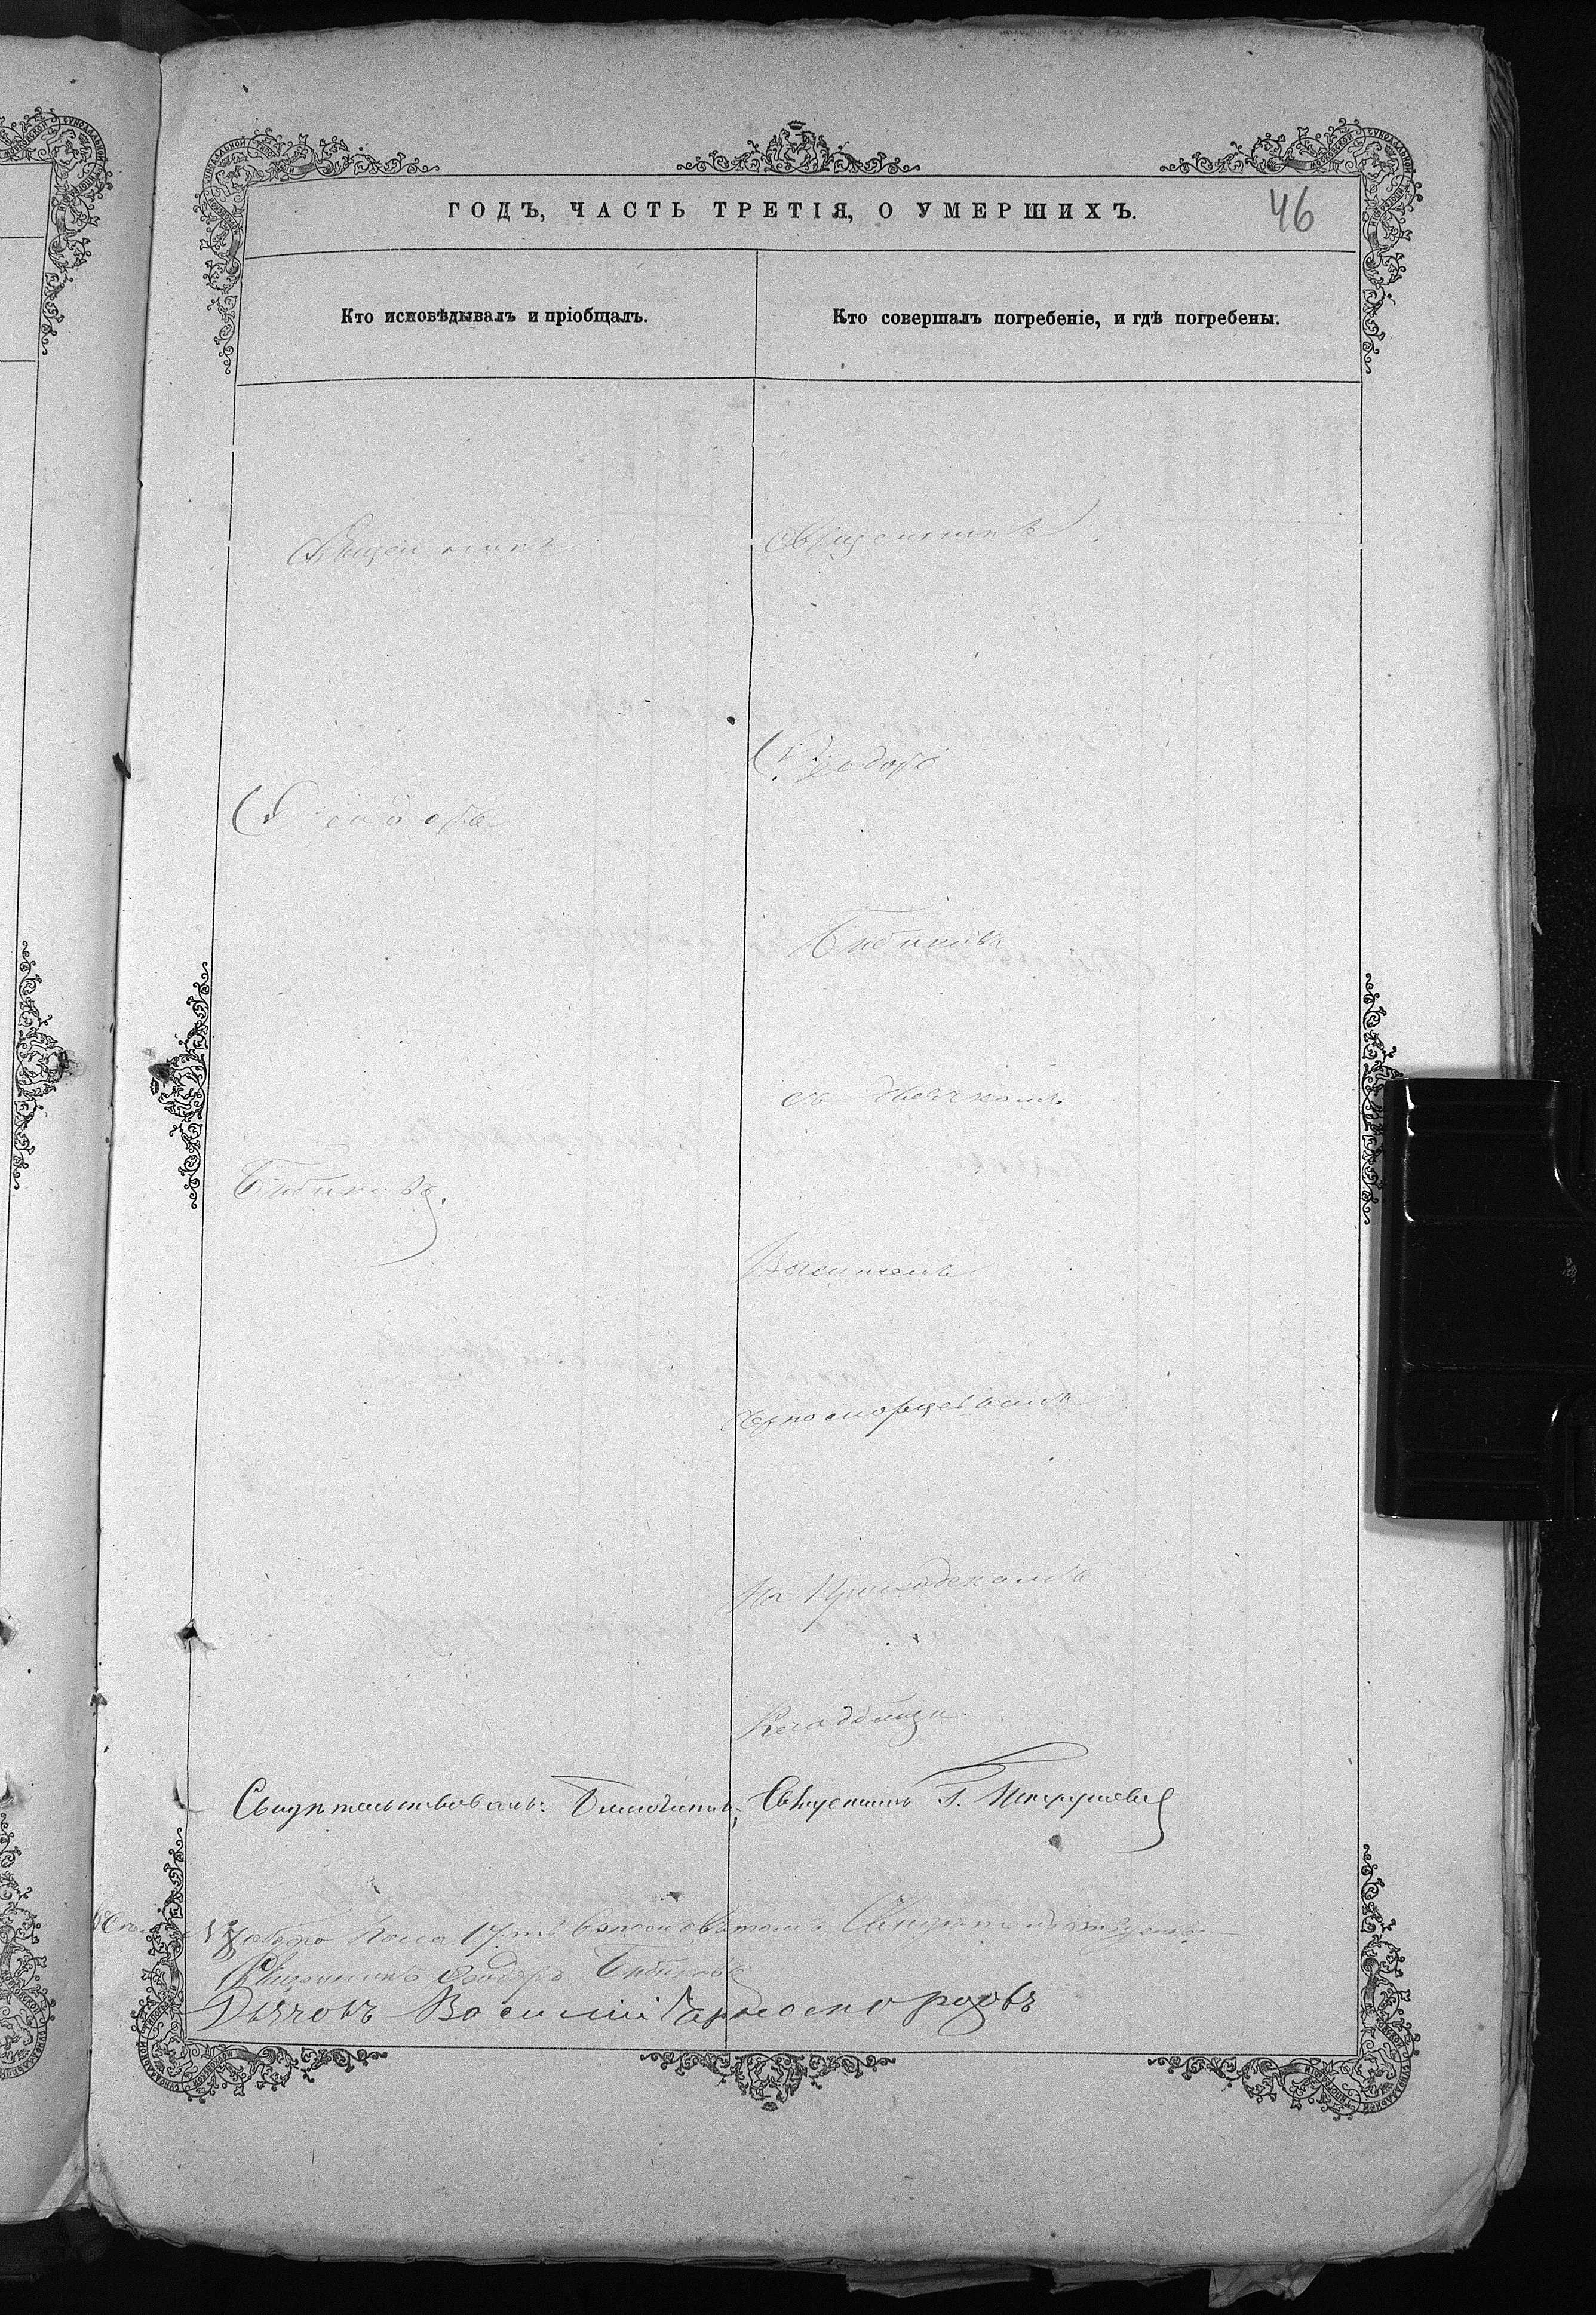 ГОДЪ, ЧАСТЬ ТРЕТІЯ, О УМЕРШИХЪ.
46
Кто исповѣдывалъ и пріобщалъ.
Кто совершалъ погребеніе, и гдѣ погребены.
Священникъ
Ѳеодоръ
Бибиковъ.
Священникъ
Ѳеодоръ
Бибиковъ
съ дьячкомъ
Василіемъ
Черноморцевымъ
На приходскомъ
Кладбищѣ
Свидѣтельствовалъ: Благочинный, Священникъ Г.
Священникъ Ѳеодоръ Бибиковъ
Дьячокъ Василий Черноморцовъ